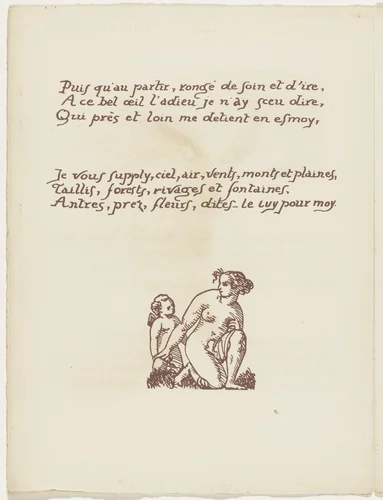 Puis qu'au partir, rongé de soin et d'ire,
A ce bel œil l'adieu je n'ày sceu dire,
Qui près et loin me detient en esmoy,
Je vous supply, ciel, air, vents, monts et plaines,
Taillis, forests, rivages et fontaines.
Antres, prez, fleurs, dites-le luy pour moy.